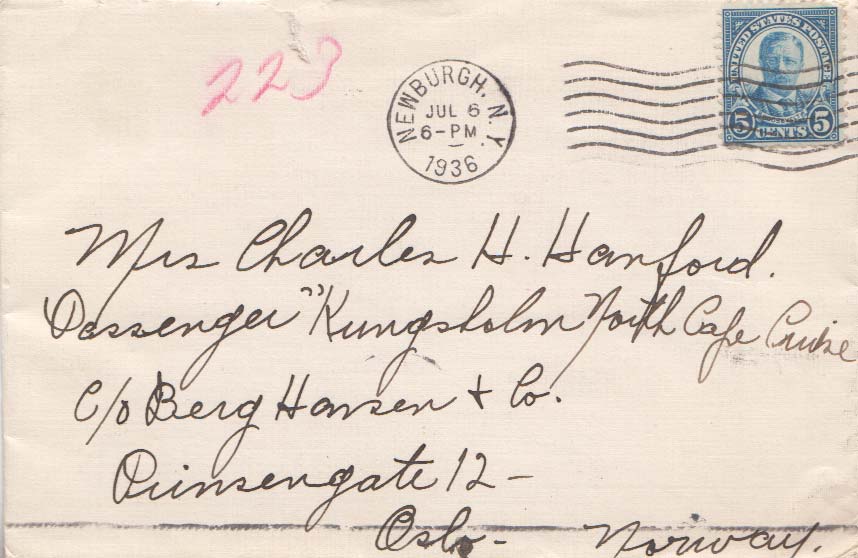 223
NEWBURGH, N.Y.
JUL 6
6-PM
1936
UNITED STATES POSTAGE
5 CENTS 5
Mrs Charles H. Hanford.
Passenger "Kungsholm North Cape Cruise
c/o Berg Hansen + Co.
Prinsengate 12-
Oslo- Norway.